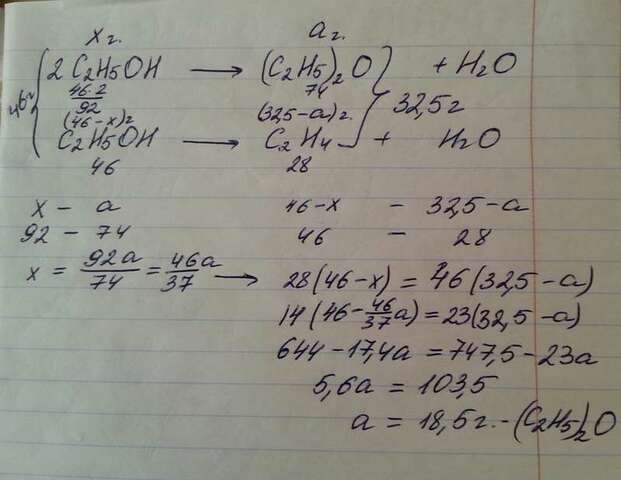 x г. a г.
2 C₂H₅OH → (C₂H₅)₂O + H₂O
46г 46·2/92 74 32,5 г
(46-x)г (32,5-a)г.
C₂H₅OH → C₂H₄ + H₂O
46 28
x - a 46-x - 32,5-a
92 - 74 46 - 28
x = 92a/74 = 46a/37 → 28(46-x) = 46(32,5-a)
14(46-46/37a) = 23(32,5-a)
644-17,4a = 747,5-23a
5,6a = 103,5
a = 18,5г. - (C₂H₅)₂O